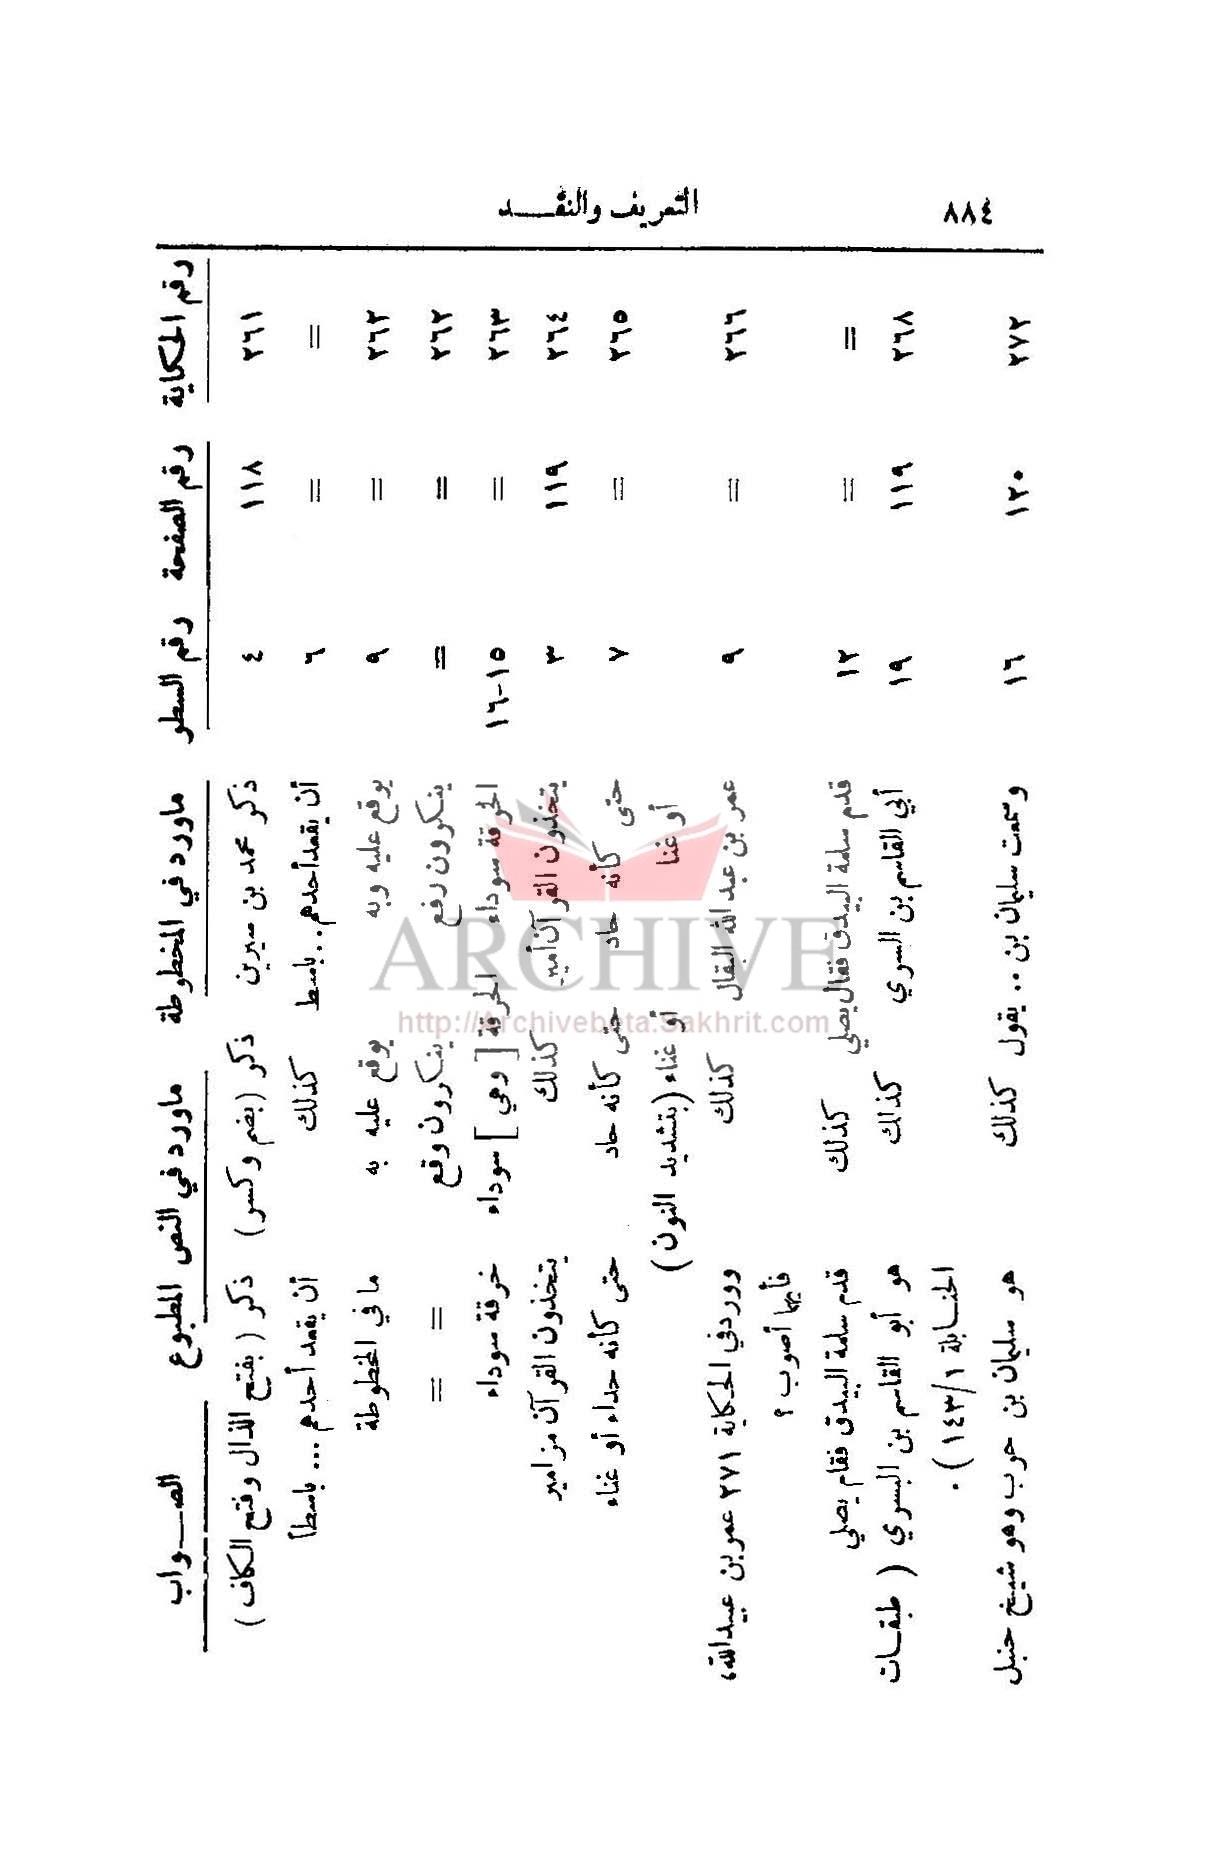 التعريف والنقد
٨٨٤
رقم الحكاية رقم الصفحة رقم السطر ماورد في المخطوطة ماورد في النص المطبوع الصواب
٢٦١ ١١٨ ٤ ذكر محمد بن سيرين ذكر (بضم وكسر) ذكر (بفتح الذال وفتح الكاف)
= = ٦ أن يقعد أحدهم.. باسط كذلك أن يقعد أحدهم... باسطاً
٢٦٢ = ٩ يوقع عليه وبه يوقع عليه به ما في المخطوطة
٢٦٢ = = ينكرون رفع ينكرون وقع = =
٢٦٣ = ١٥-١٦ الخرقة سوداء الخرقة [وهي] سوداء خرقة سوداء
٢٦٤ ١١٩ ٣ يتخذون القرآن أمير كذلك يتخذون القرآن مزامير
٢٦٥ = ٧ حتى كأنه حاد حتى كأنه حاد حتى كأنه حداء أو غناء
أو غنا أو غناء (بتشديد النون)
٢٦٦ = ٩ عمر بن عبد الله البقال كذلك وورد في الحكاية ٢٧١ عمر بن عبيدالله،
فأيهما أصوب؟
= = ١٢ قدم سلمة البيدق فقال يصلي كذلك قدم سلمة البيدق فقام يصلي
٢٦٨ ١١٩ ١٩ أبي القاسم بن السري كذلك هو أبو القاسم بن البسري (طبقات
الحنابلة ١/١٤٣).
٢٧٢ ١٢٠ ١٦ وسمعت سليمان بن.. يقول كذلك هو سليمان بن حرب وهو شيخ حنبل
ARCHIVE
http://Archivebeta.Sakhrit.com